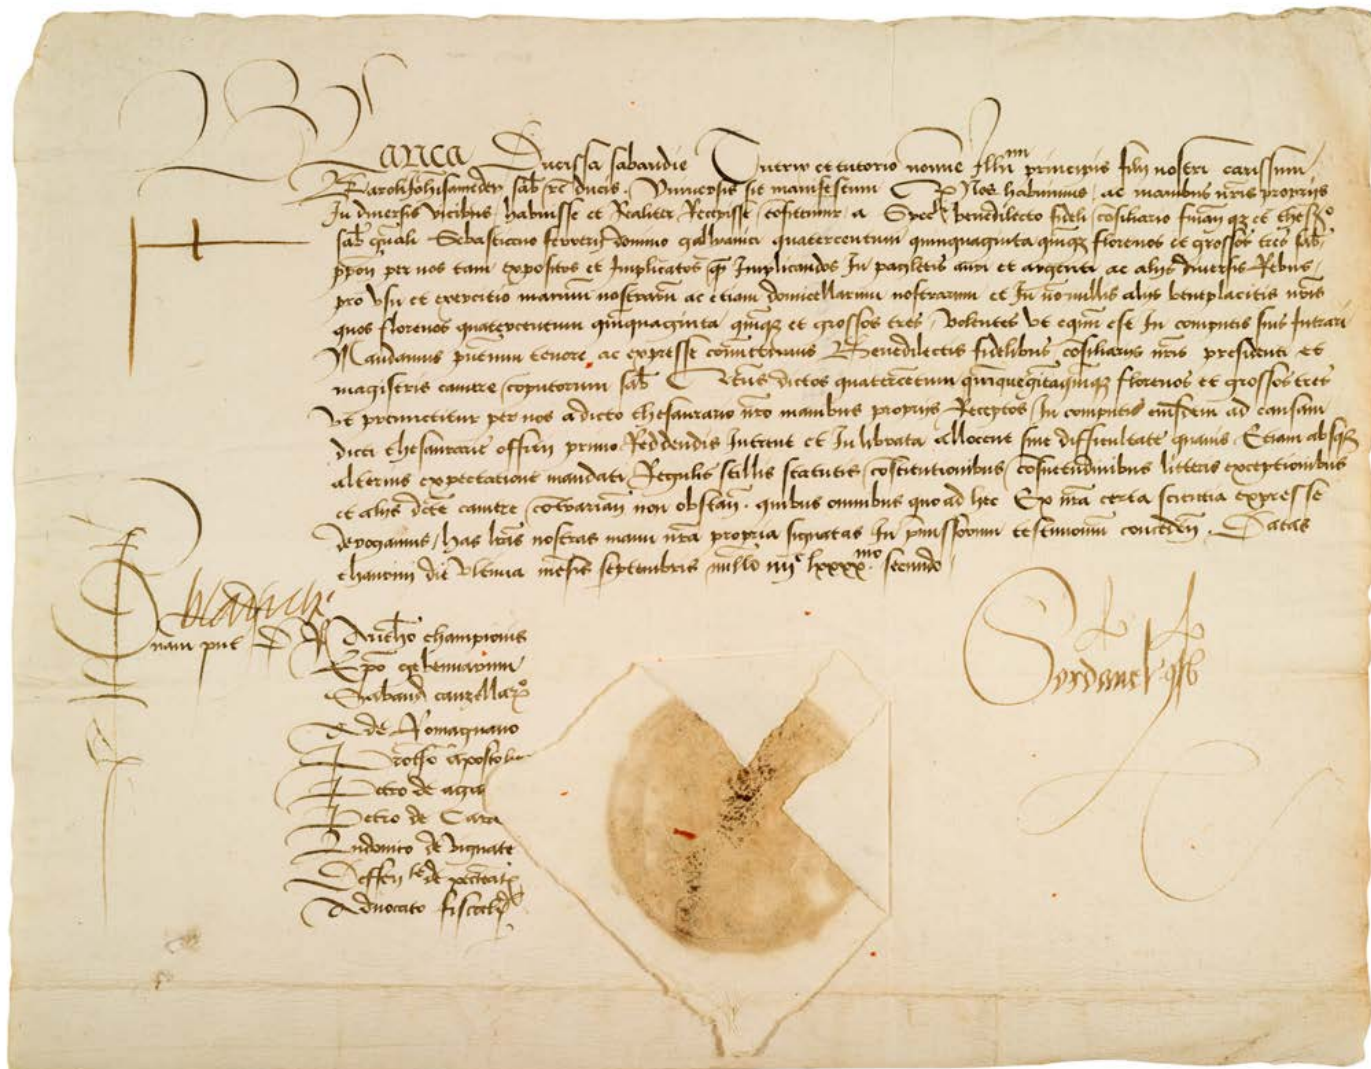 Blanca Ducissa Sabaudie Tutrix et tutorio nomine Illmi principis filii nostri carissimi
Karoli Johis amedey sab rc ducis. Universis sit manifestum Q Nos habuimus, ac manibus nris proprys
In diversis vicibus habuisse et Realiter Recepisse, cofitemur a Spec benedilecto fideli cosiliario finan qz et thesro
sab gnali Sebastiano ferrery domino gallianici quatercentum quinquaginta quinqz florenos et grossos tres sab
ppon per nos tam expositos et Implicatos q Implicandos In pacyletis auri et argenti ac alys diversis Rebus,
pro usu et exercitio manuum nostrarum ac etiam domicellarum nostrarum et In nonullis alys beneplacitis nris
quos florenos quatercentum quinquaginta quinqz et grossos tres, Volentes ut equm est In computis suis Intrari
Mandamus pntium tenore, ac expresse comittimus Benedilectis fidelibus cosiliarys nris presidenti et
magistris camere coputorum sab Ut dictos quatercetum quinquagitaquinqz florenos et grossos tres
Ut premictitur per nos a dicto thesaurario nro manibus proprys Receptos, In computis eiusdem ad causam
dicti thesaurarie officy primo Reddendis Intrent et In librata allocent sine difficultate quavis, Etiam absqz
alterius expectatione mandati, Regulis stillis statutis, costitutionibus, cosuetudinibus litteris exceptionibus
et alys dcte camere cotrarian non obstan. quibus omnibus quo ad hec Ex nra certa scientia expresse
derogamus, has lras nostras manu nra propria signatas In pmissorum testimonium conceden. Datas
chamin die Ultima mesis septembris millo iiijc lxxxxmo. secundo
blanche
nam put D R Antho championis
Epo gebennarum
Sabaud canzellaro
A de Romagnano
Protho Apostoli
Petro de agia
Petro de Cara
Ludovico de Vignate
Deffen te de
Advocato fiscali